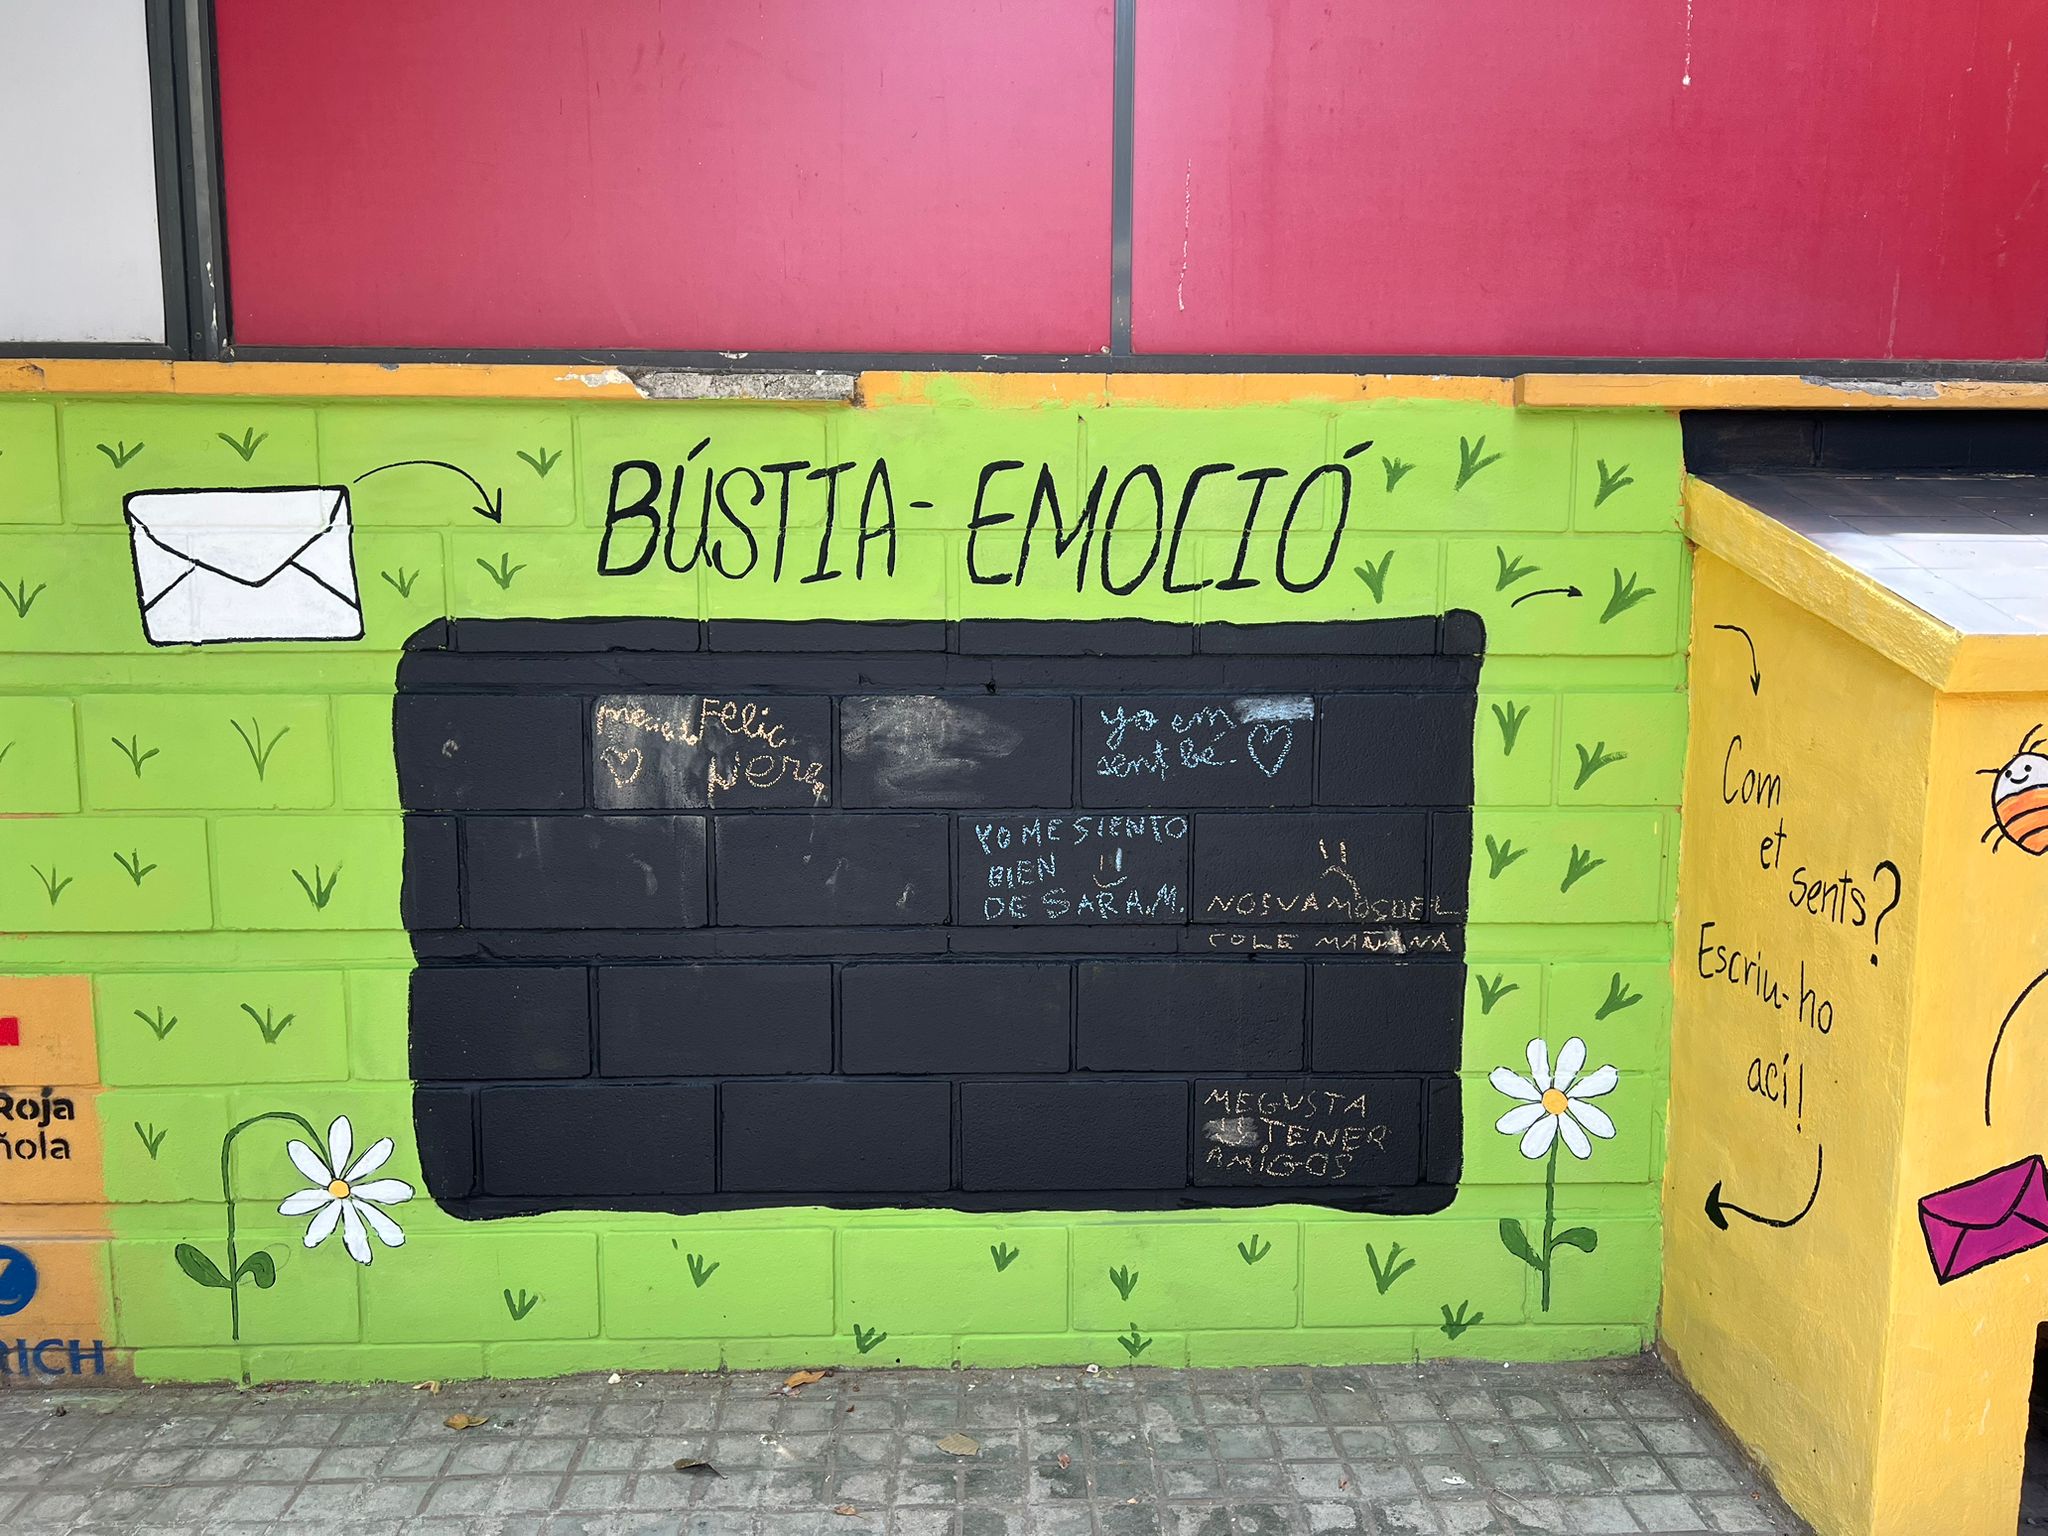 BÚSTIA-EMOCIÓ
Felic
Nera
yo em
sent be.
YO ME SIENTO
BIEN
DE SARA.M.
NOS VAMOS DEL
COLE MAÑANA
ME GUSTA
TENER
AMIGOS
Com
et
sents?
Escriu-ho
ací!
Roja
ñola
RICH